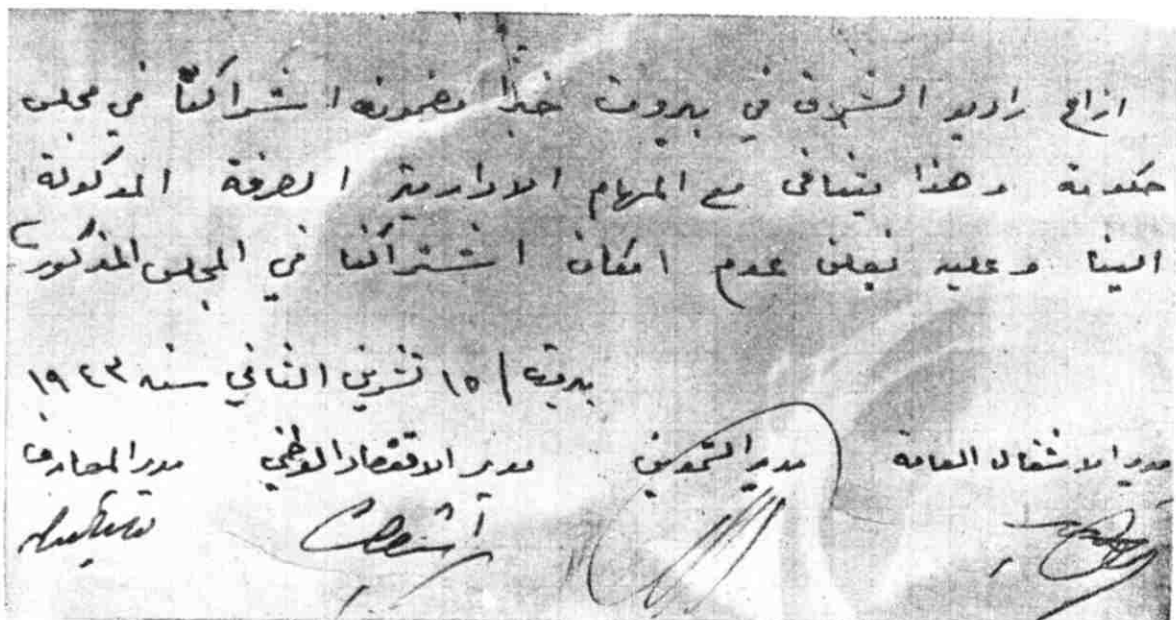 اذاع راديو الشرق في بيروت خبراً مضمونه اشتراكنا في مجلس
حكومة وهذا يتنافى مع المهام الادارية الصرفة الموكولة
الينا وعليه نعلن عدم امكان اشتراكنا في المجلس المذكور
بيروت / ١٥ تشرين الثاني سنه ١٩٤٣
مدير الاشغال العامة مدير التموين مدير الاقتصاد الوطني مدير المعارف